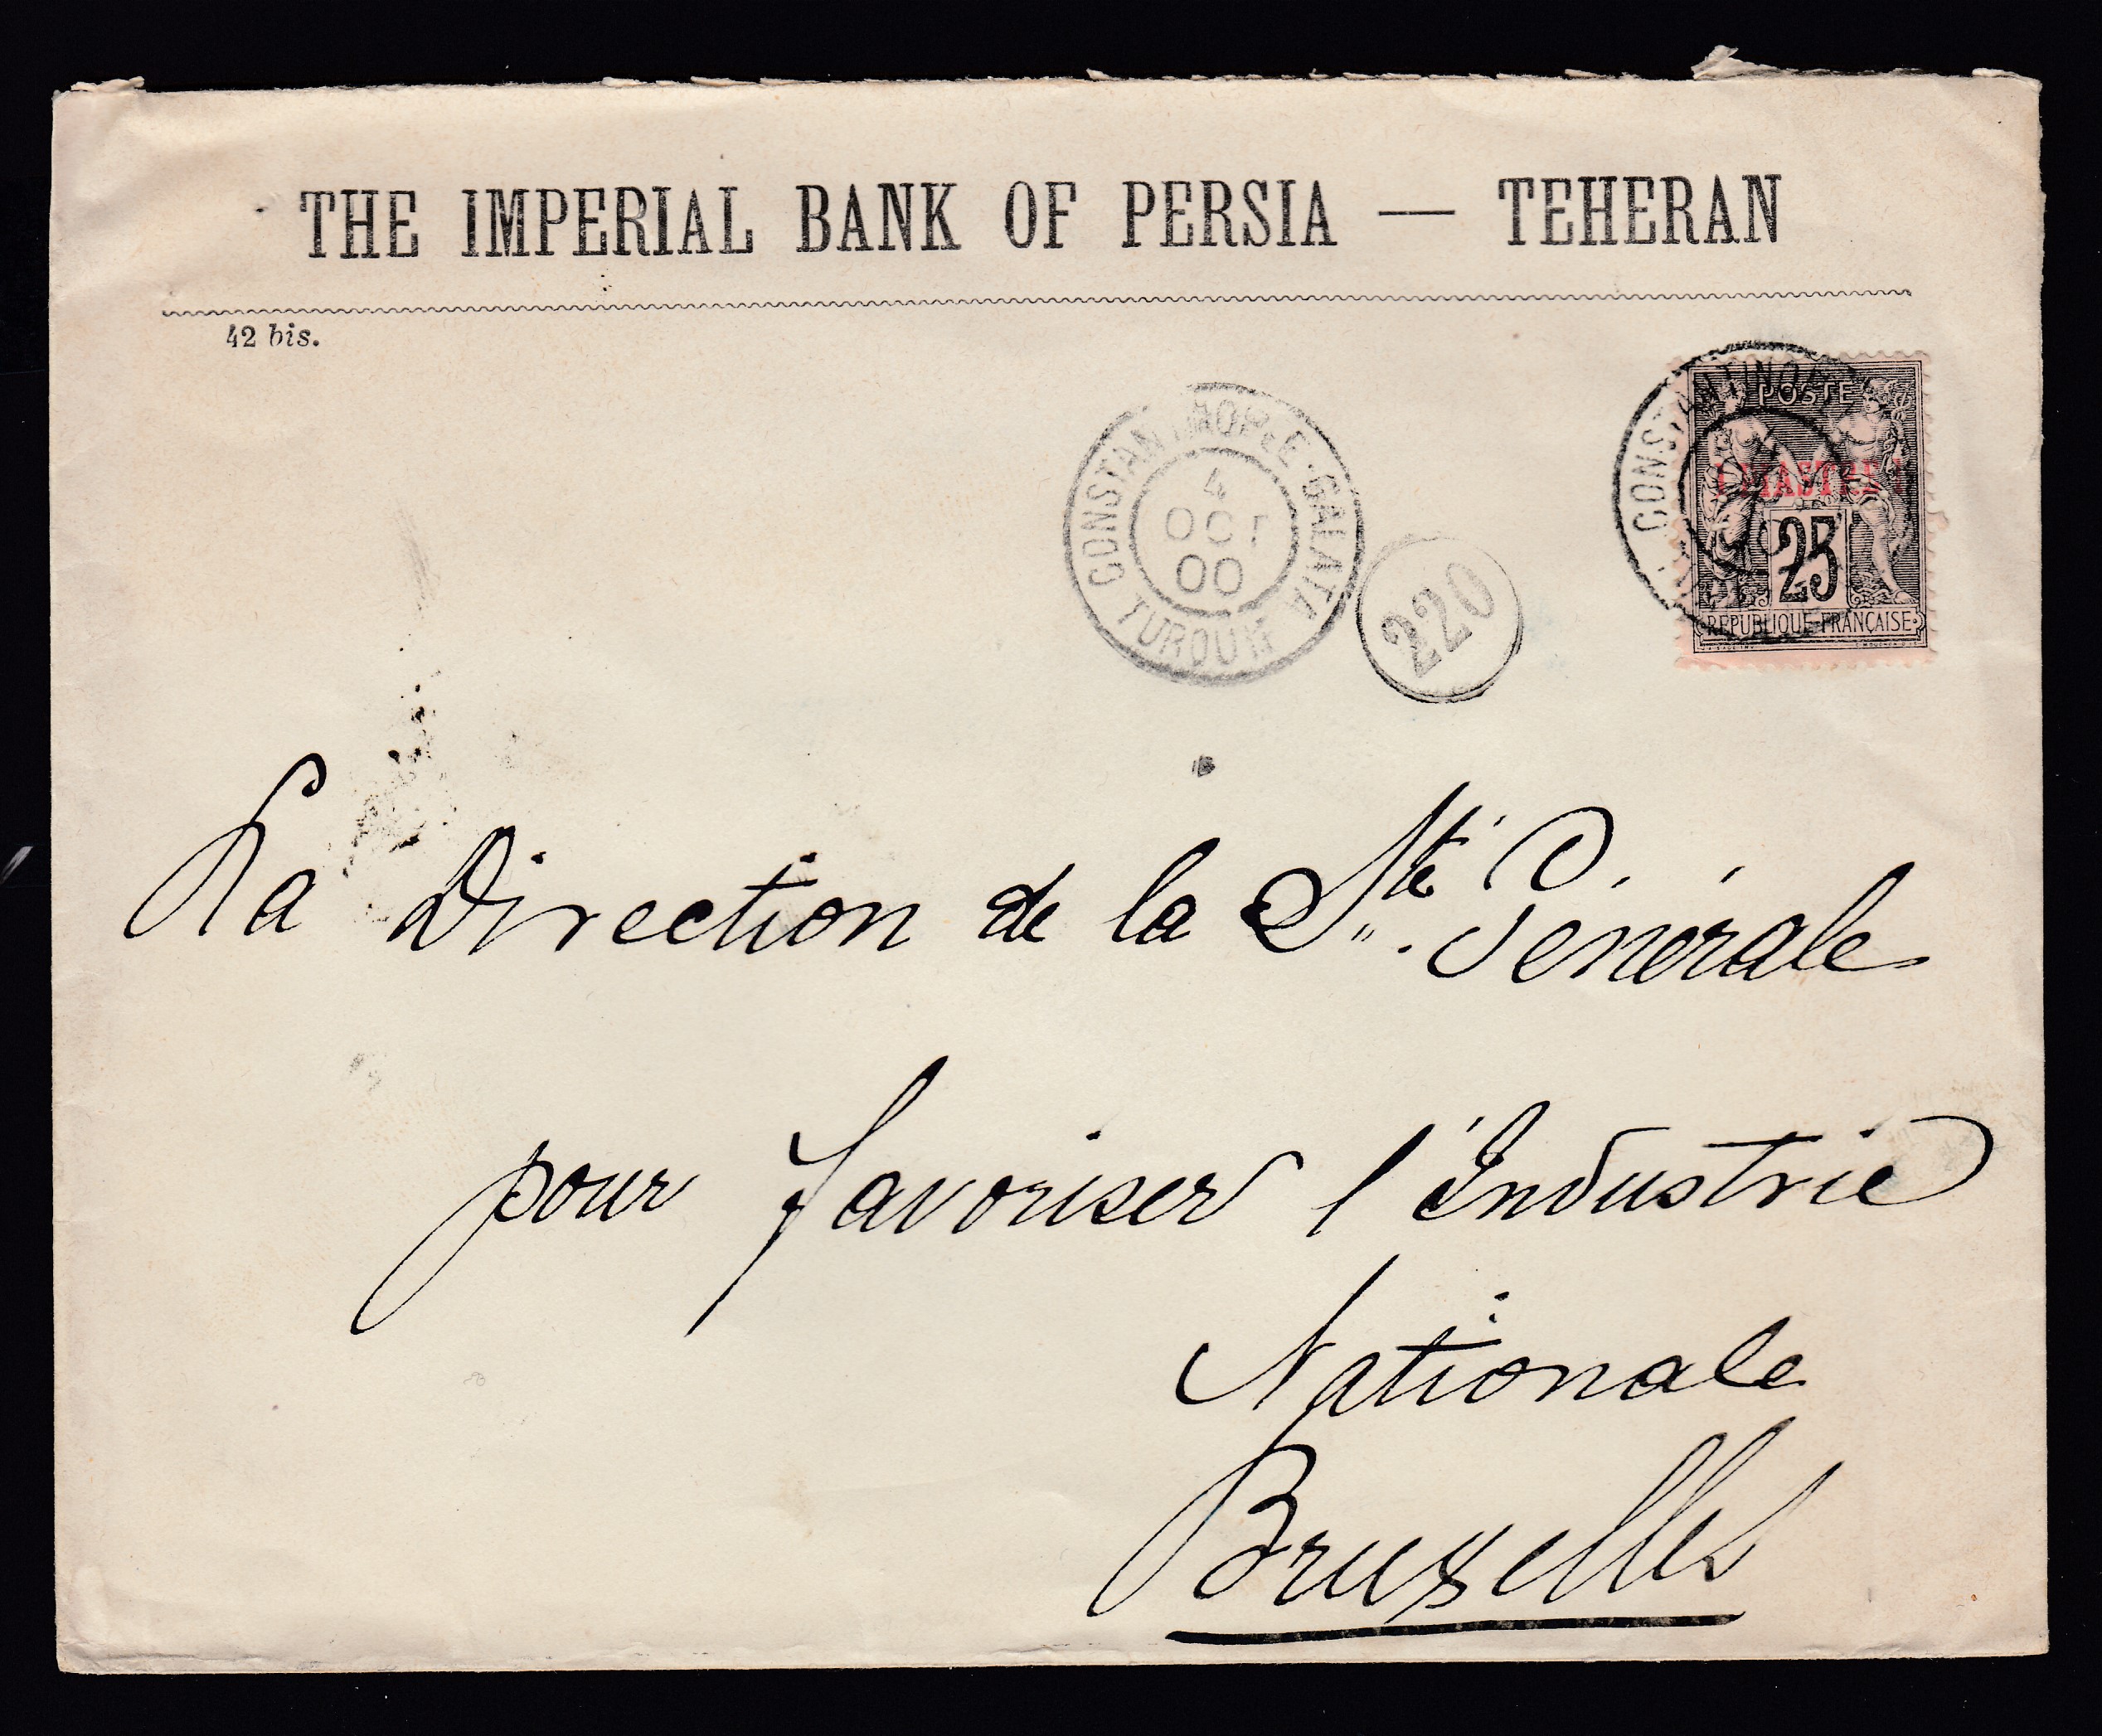 THE IMPERIAL BANK OF PERSIA — TEHERAN
42 bis.
CONSTANTINOPLE-GALATA
4
OCT
00
TURQUIE
220
CONSTANTINOPLE
POSTE
1 PIASTRE 1
25
REPUBLIQUE FRANÇAISE
La Direction de la Sté. Générale
pour favoriser l'Industrie
Nationale
Bruxelles